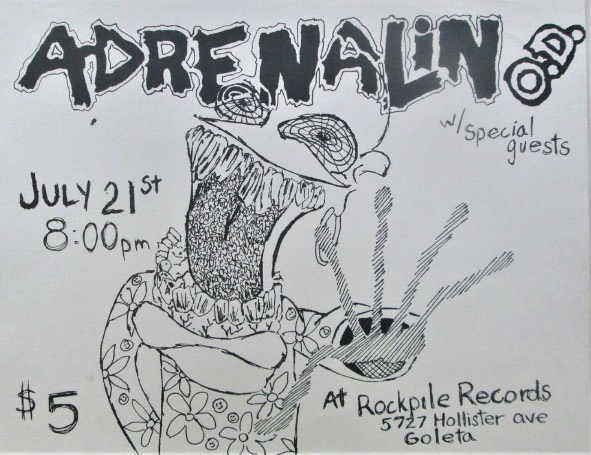 ADRENALIN O.D.
w/ special
guests
JULY 21st
8:00pm
$5
At Rockpile Records
5727 Hollister ave
Goleta